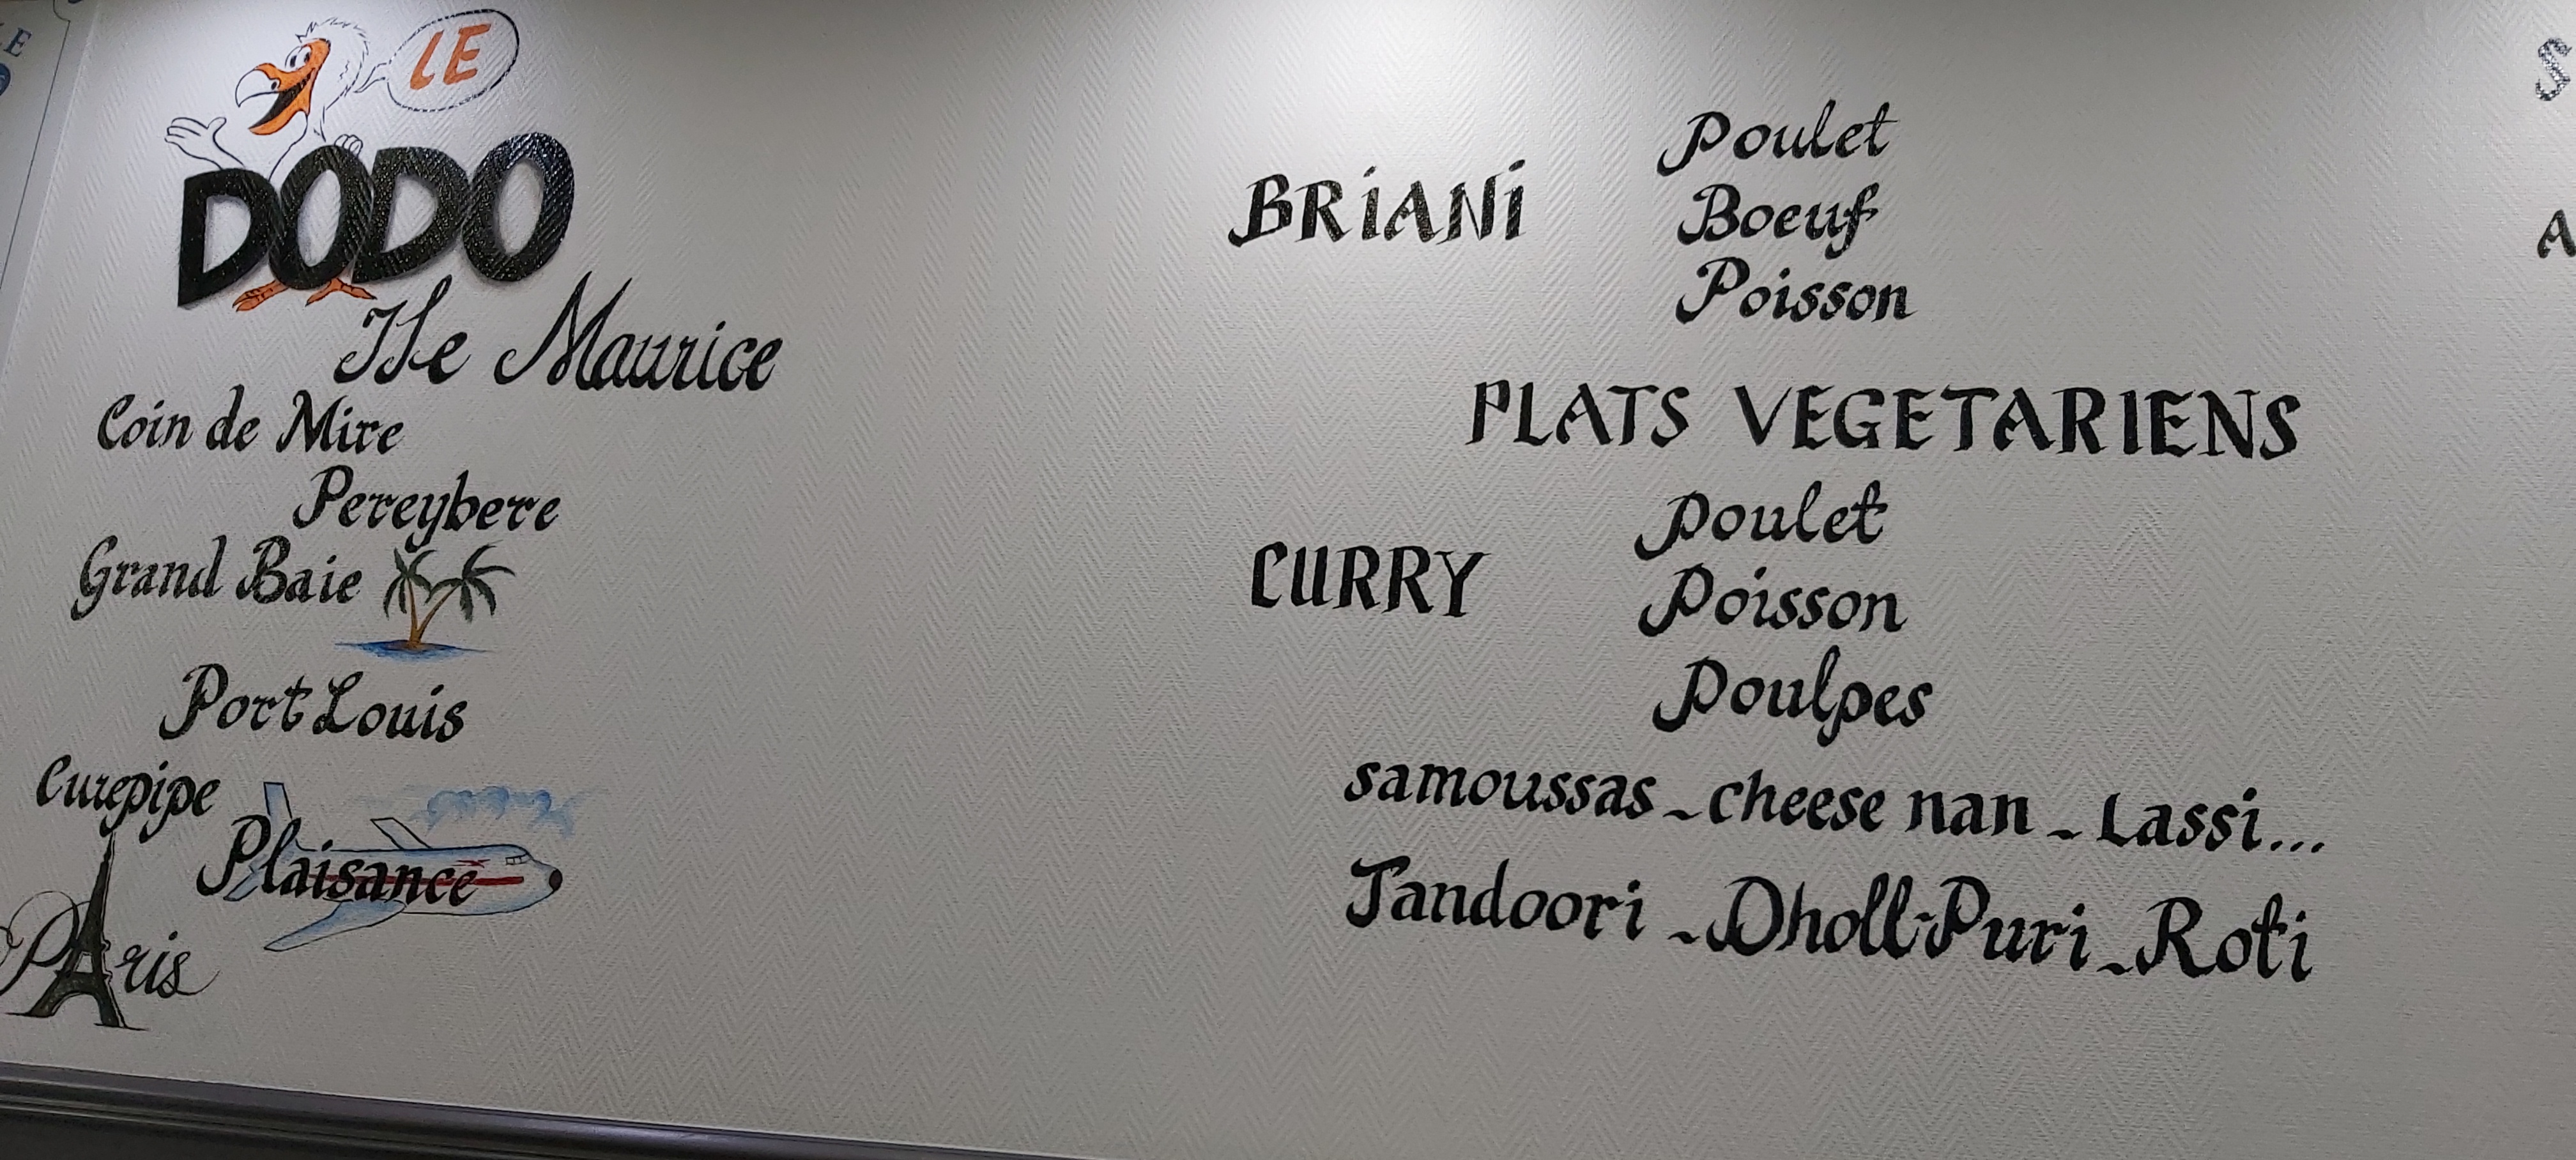 LE
DODO
Ile Maurice
Coin de Mire
Pereybere
Grand Baie
Port Louis
Curepipe
Plaisance
Paris
BRiANi
Poulet
Boeuf
Poisson
PLATS VEGETARIENS
CURRY
Poulet
Poisson
Poulpes
samoussas - cheese nan - Lassi...
Tandoori - Dholl-Puri - Roti